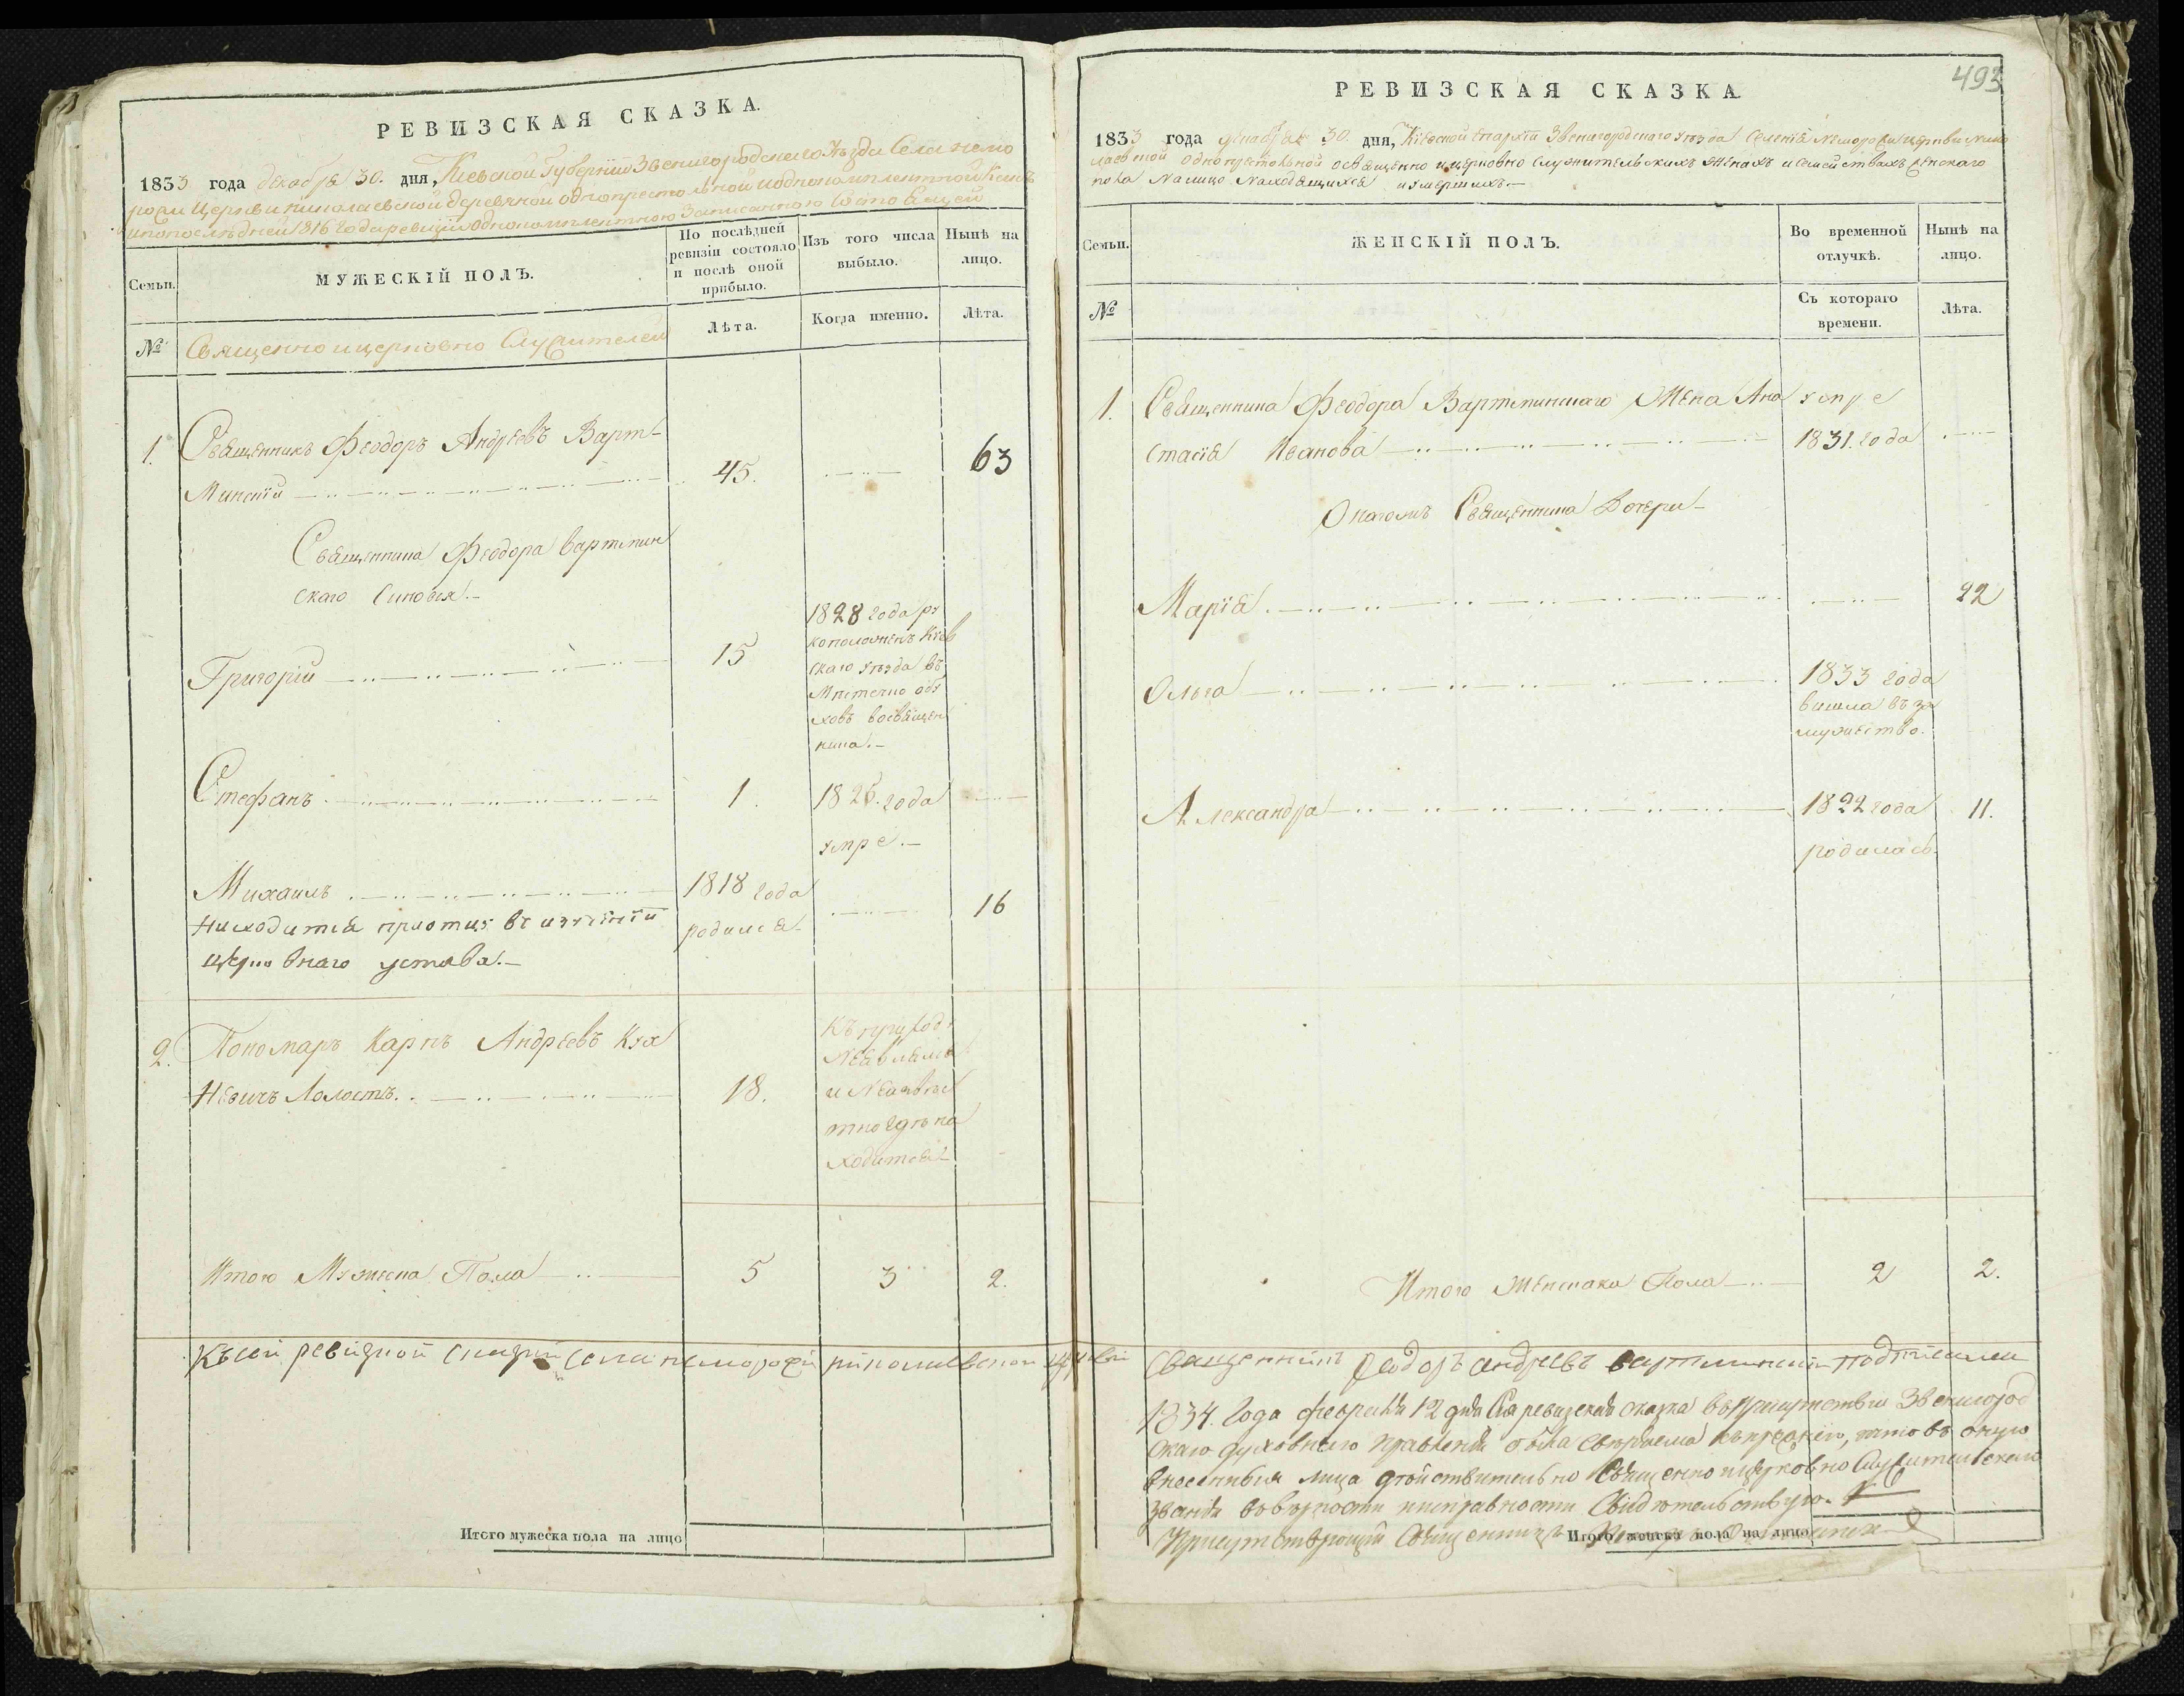 РЕВИЗСКАЯ СКАЗКА.
1833 года декабря 30. дня, Киевской Губернiи Звенигородскаго Уезда Села Немо
рожи Церкви Николаевской деревянной однопрестольной
и по последней 1816 года ревизiи однокомплектною Записанною состоящей
Семьи.
МУЖЕСКІЙ ПОЛЪ.
По послѣдней ревизіи состояло и послѣ оной прибыло.
Изъ того числа выбыло.
Нынѣ на лицо.
№
Священно и церковно Служителей
Лѣта.
Когда именно.
Лѣта.
1. Священникъ Феодоръ Андреевъ Варт-
минскiй 45. 63
Священника Феодора вартмин
скаго Синовья.-
Григорiй 15
1828 года ру
коположенъ Киев
скаго уезда въ
Местечко обу
ховъ во священ
ника.-
Стефанъ 1. 1826. года
умре.-
Михаилъ 1818 года 16
родился
находится при отцу въ изученiи
церковнаго устава.-
2. Пономаръ Карпъ Андреевъ Кух
невичъ Холостъ. 18.
Къ приходу
не явился
и неизвес
тно где на
ходится
Итого Мужеска Пола 5 3 2.
Къ сей ревизкой сказки села неморожи николаевской церкви
Итого мужеска пола на лицо
493
РЕВИЗСКАЯ СКАЗКА
1833 года декабря 30. дня, Киевской Епархiи Звенигородскаго уезда Селенiя Неморожи церкви Нико
лаевской однопрестольной о священно и церковно служительскихъ женахъ и семействахъ женскаго
пола налицо находящихся и умершихъ.-
Семьи.
ЖЕНСКІЙ ПОЛЪ.
Во временной отлучкѣ.
Нынѣ на лицо.
№
Съ котораго времени.
Лѣта.
1. Священника Феодора Вартминскаго Жена Ана умре
стасiя Иванова 1831. года
Священника Дочери-
Марiя 22
Ольга 1833 года
вишла въ за
мужество.
Александра 1822 года 11.
родилась.
Итого Женскаго Пола 2 2.
Священникъ Феодоръ андреевъ вартминскiй подписался
1834. Года февраля 12 дня Сiя ревизская сказка въ присутствiи Звенигород
скаго духовнаго правленiя была сверяема, что въ оную
внесенныя лица действительно Священно и церковно Служительскаго
званiя въ верности и исправности Свидетельствую.
Присутствующiй Священникъ
Итого женска пола на лицо